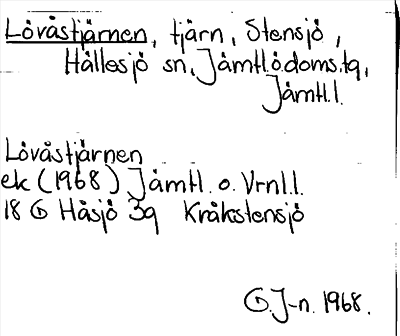 Lövåstjärnen, tjärn, Stensjö,
Hällesjö sn, Jämtl.ö.doms.tg,
Jämtl.l.
Lövåstjärnen
ek (1968) Jämtl. o. Vrnl.l.
18 G Håsjö 3g Kråkstensjö
G.J-n. 1968.